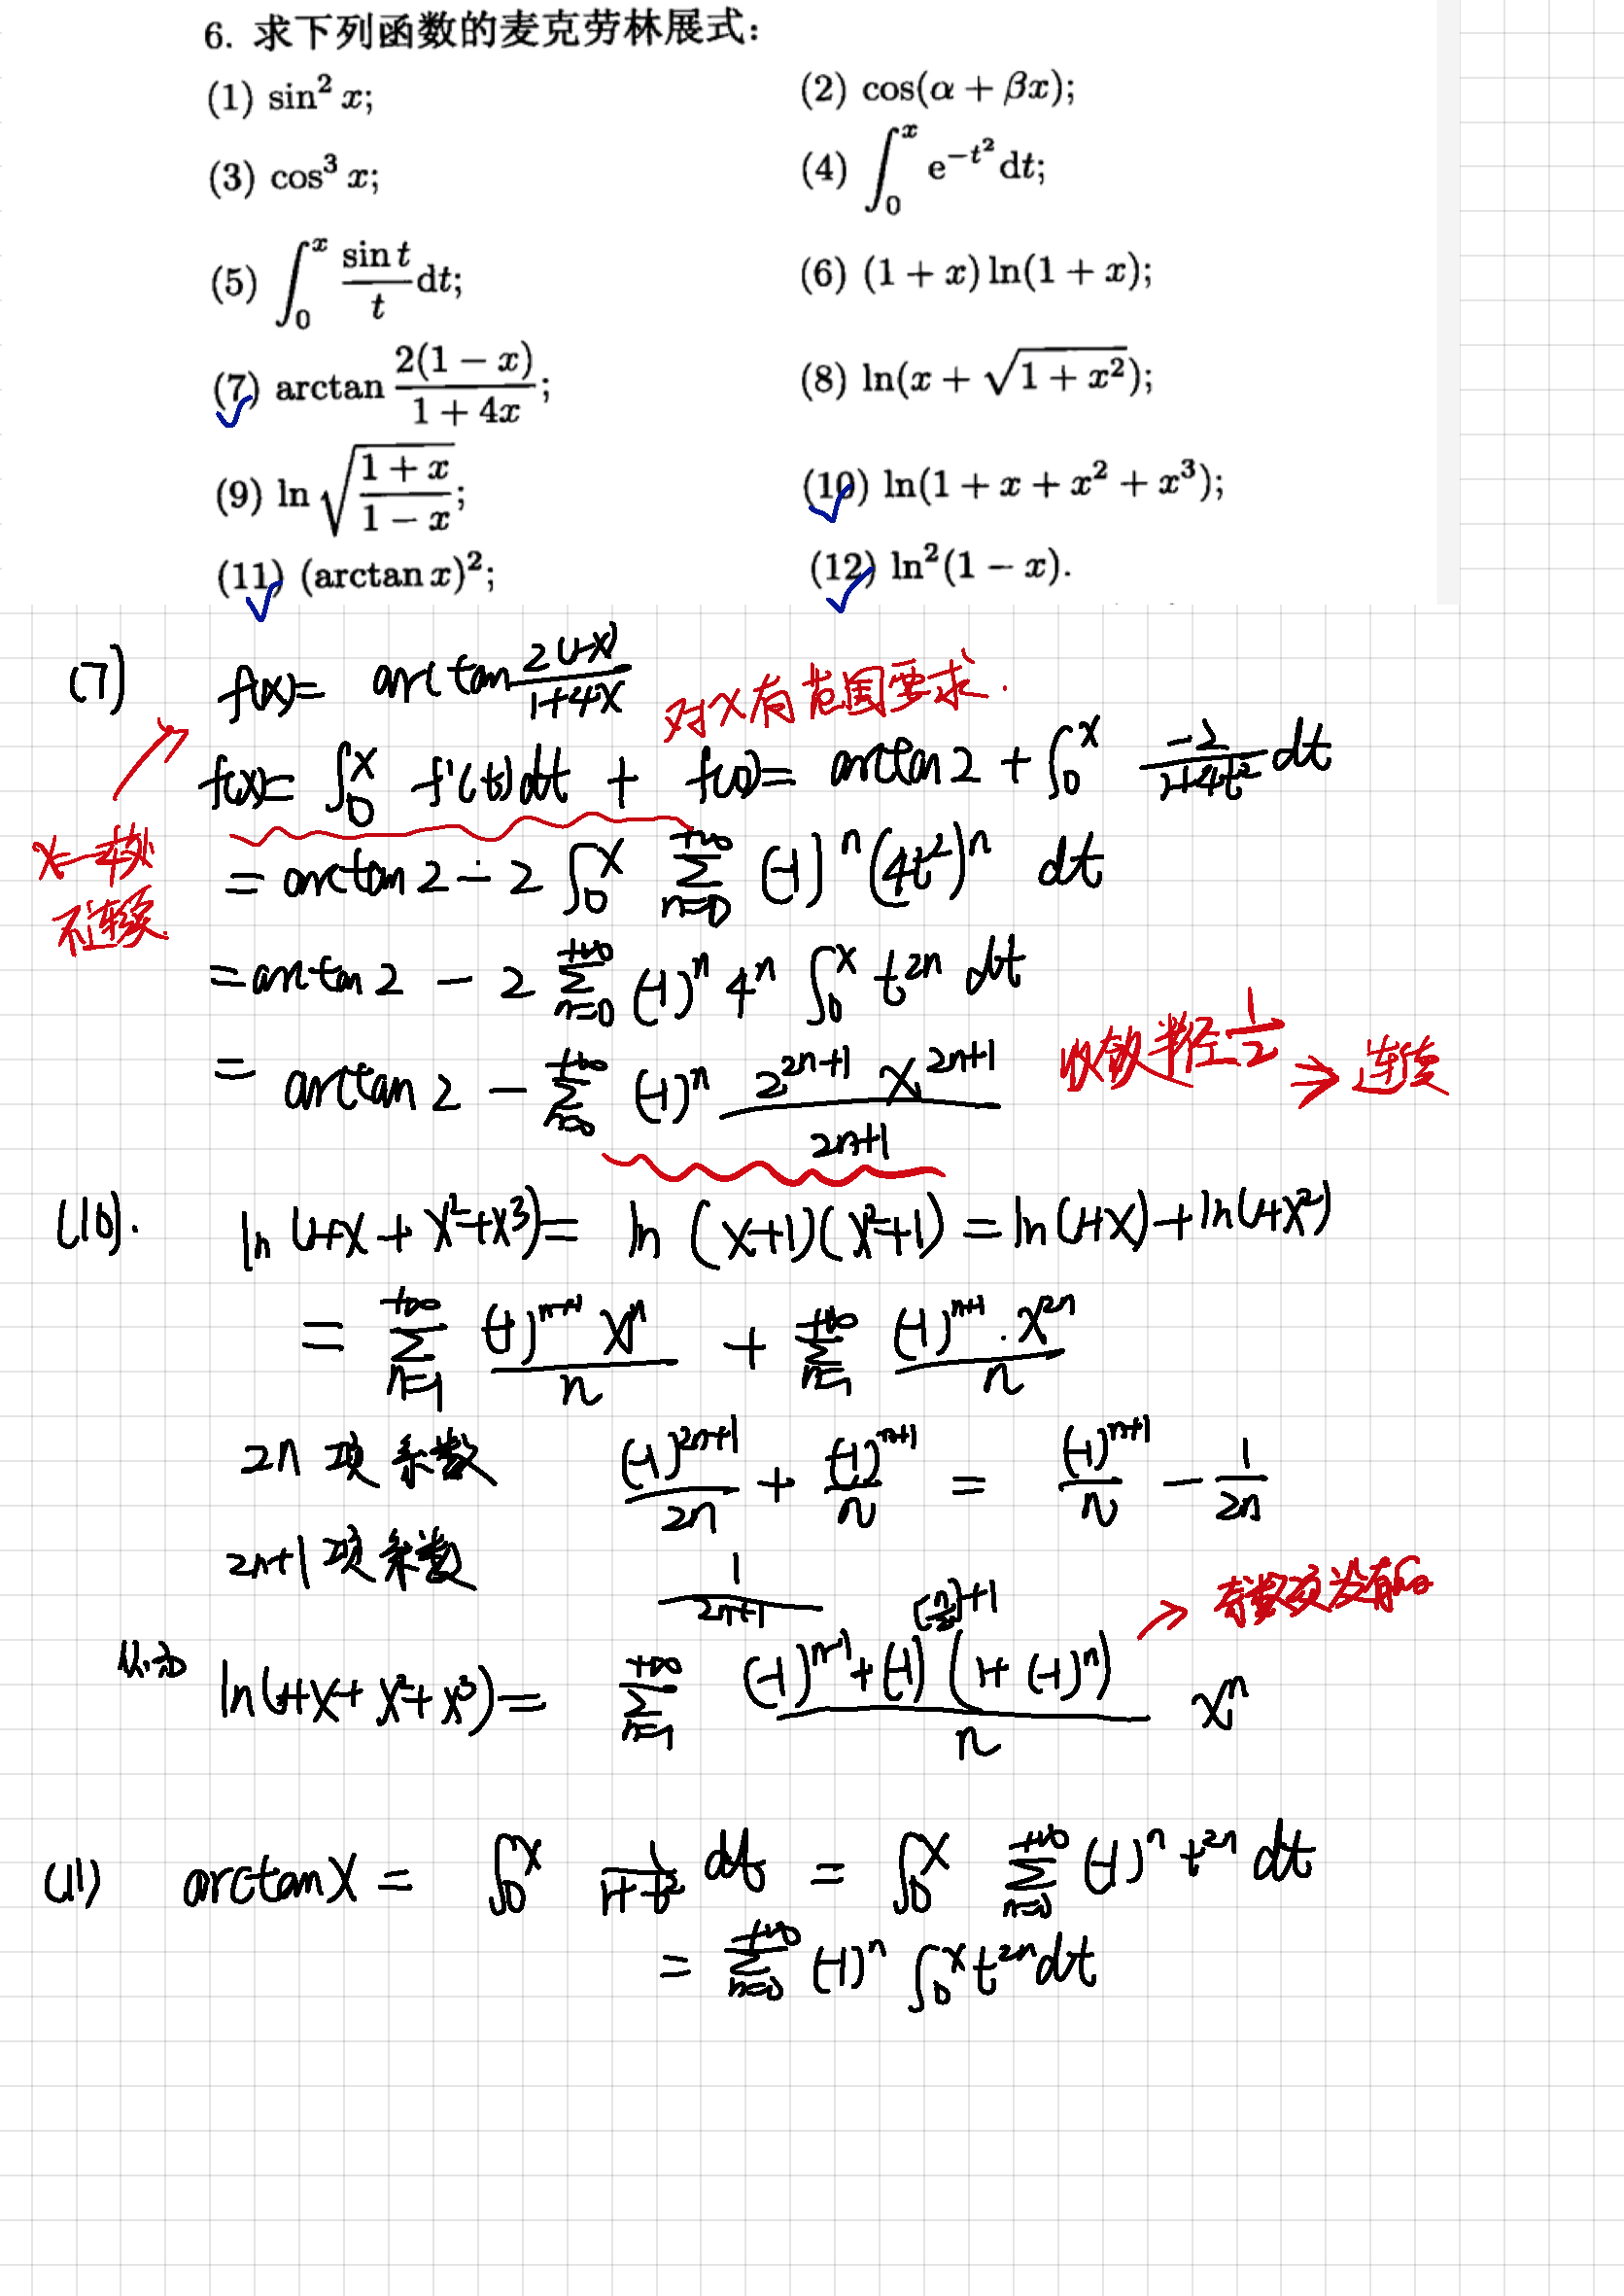 6. 求下列函数的麦克劳林展式：
(1) sin² x; (2) cos(α + βx);
(3) cos³ x; (4) ∫₀ˣ e^{-t²} dt;
(5) ∫₀ˣ \frac{sin t}{t} dt; (6) (1 + x) ln(1 + x);
(7) arctan \frac{2(1 − x)}{1 + 4x}; (8) ln(x + √(1 + x²));
(9) ln √(\frac{1 + x}{1 − x}); (10) ln(1 + x + x² + x³);
(11) (arctan x)²; (12) ln²(1 − x).
(7) f(x) = arctan \frac{2(1-x)}{1+4x} 对x有范围要求.
f(x) = ∫₀ˣ f'(t)dt + f(0) = arctan 2 + ∫₀ˣ \frac{-2}{1+4t²} dt
x=-\frac{1}{4}处
不连续.
= arctan 2 - 2 ∫₀ˣ \sum_{n=0}^{+∞} (-1)^n (4t²)^n dt
= arctan 2 - 2 \sum_{n=0}^{+∞} (-1)^n 4^n ∫₀ˣ t^{2n} dt
= arctan 2 - \sum_{n=0}^{+∞} (-1)^n \frac{2^{2n+1} x^{2n+1}}{2n+1} 收敛半径\frac{1}{2} → 连续
(10). ln(1+x+x²+x³) = ln (x+1)(x²+1) = ln(1+x)+ln(1+x²)
= \sum_{n=1}^{+∞} \frac{(-1)^{n+1} x^n}{n} + \sum_{n=1}^{+∞} \frac{(-1)^{n+1}·x^{2n}}{n}
2n 项 系数 \frac{(-1)^{2n+1}}{2n} + \frac{(-1)^{n+1}}{n} = \frac{(-1)^{n+1}}{n} - \frac{1}{2n}
2n+1 项 系数 \frac{1}{2n+1}
ln(1+x+x²+x³) = \sum_{n=1}^{+∞} \frac{(-1)^{n-1}+(-1)^{[\frac{n}{2}]+1}(1+(-1)^n)}{n} x^n → 奇数项没有
(11) arctan x = ∫₀ˣ \frac{1}{1+t²} dt = ∫₀ˣ \sum_{n=0}^{+∞} (-1)^n t^{2n} dt
= \sum_{n=0}^{+∞} (-1)^n ∫₀ˣ t^{2n} dt